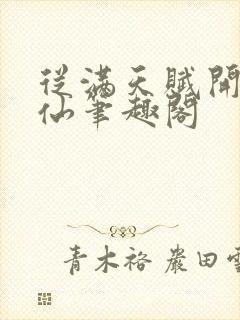 從滿天賦開
仙筆趣閣
青木裕 嚴田雲